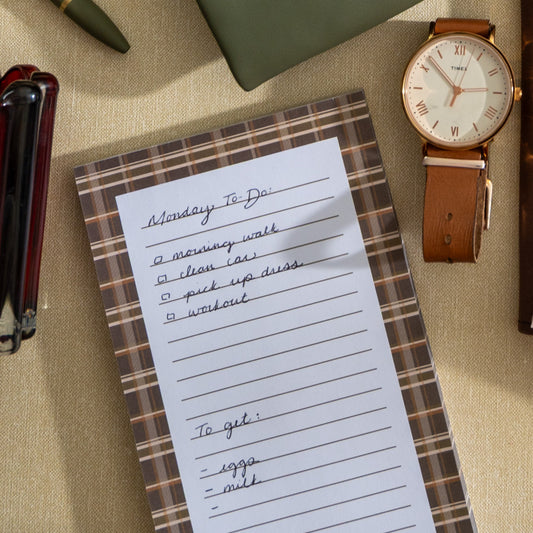 Monday To-Do:
☐ morning walk
☐ clean car
☐ pick up dress
☐ workout
To get:
- eggs
- milk
-
TIMEX